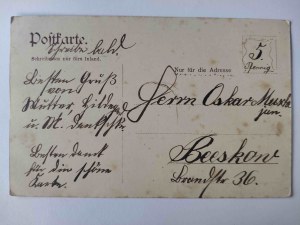 Postkarte.
Schreibe bald.
Nur für die Adresse
5
Pfennig
Besten Gruß
von
Mutter
u. M.
Besten Dank
für die schöne
Karte.
Herrn Oskar
jun.
Beeskow
Brandstr 36.